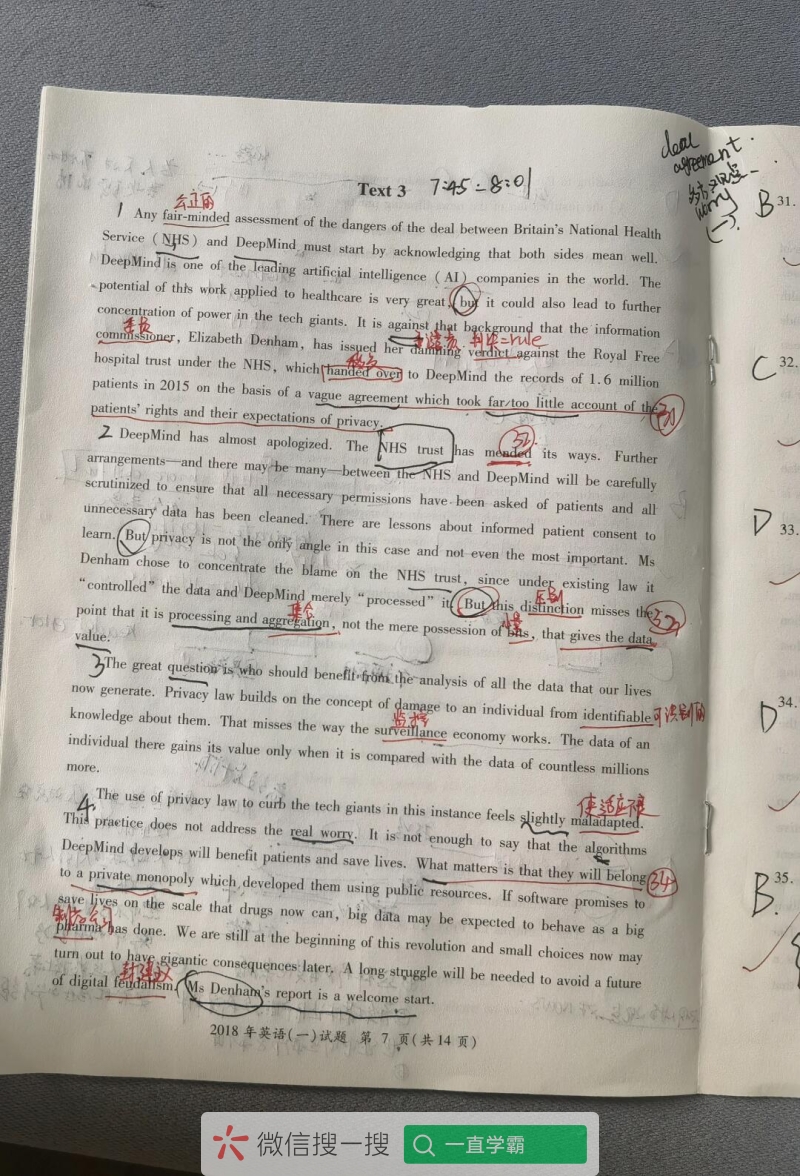 Text 3 7:45-8:01
deal
agreement
worry
(一).
公正的
1 Any fair-minded assessment of the dangers of the deal between Britain's National Health
Service (NHS) and DeepMind must start by acknowledging that both sides mean well.
DeepMind is one of the leading artificial intelligence (AI) companies in the world. The
potential of this work applied to healthcare is very great, but it could also lead to further
concentration of power in the tech giants. It is against that background that the information
委员 判决=rule
commissioner, Elizabeth Denham, has issued her damning verdict against the Royal Free
移交
hospital trust under the NHS, which handed over to DeepMind the records of 1.6 million
patients in 2015 on the basis of a vague agreement which took far too little account of the 31
patients' rights and their expectations of privacy.
2 DeepMind has almost apologized. The NHS trust has mended its ways. Further 32
arrangements—and there may be many—between the NHS and DeepMind will be carefully
scrutinized to ensure that all necessary permissions have been asked of patients and all
unnecessary data has been cleaned. There are lessons about informed patient consent to
learn. But privacy is not the only angle in this case and not even the most important. Ms
Denham chose to concentrate the blame on the NHS trust, since under existing law it
"controlled" the data and DeepMind merely "processed" it. But this distinction misses the 33
集合 区别
point that it is processing and aggregation, not the mere possession of bits, that gives the data
value.
3 The great question is who should benefit from the analysis of all the data that our lives
now generate. Privacy law builds on the concept of damage to an individual from identifiable 可识别的
监控
knowledge about them. That misses the way the surveillance economy works. The data of an
individual there gains its value only when it is compared with the data of countless millions
more.
使适应不良
4. The use of privacy law to curb the tech giants in this instance feels slightly maladapted.
This practice does not address the real worry. It is not enough to say that the algorithms
DeepMind develops will benefit patients and save lives. What matters is that they will belong 34
to a private monopoly which developed them using public resources. If software promises to
save lives on the scale that drugs now can, big data may be expected to behave as a big
制药公司
pharma has done. We are still at the beginning of this revolution and small choices now may
turn out to have gigantic consequences later. A long struggle will be needed to avoid a future
封建主义
of digital feudalism. Ms Denham's report is a welcome start.
2018 年英语(一)试题 第 7 页(共 14 页)
B 31.
C 32.
D 33.
D 34.
B. 35.
微信搜一搜 一直学霸